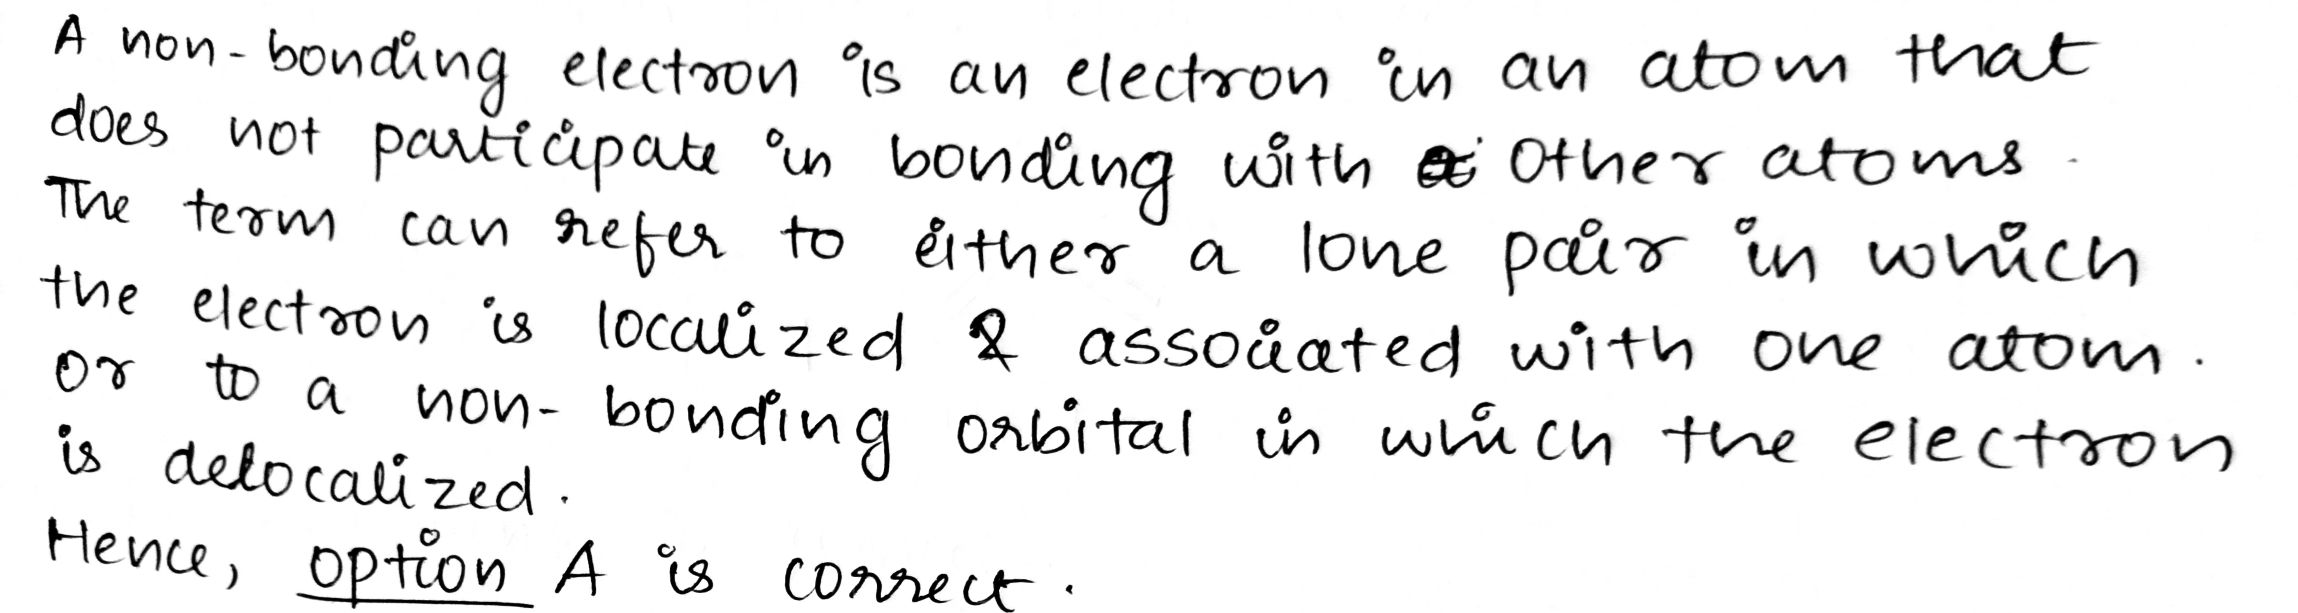 A non-bonding electron is an electron in an atom that
does not participate in bonding with other atoms.
The term can refer to either a lone pair in which
the electron is localized & associated with one atom.
or to a non-bonding orbital in which the electron
is delocalized.
Hence, option A is correct.